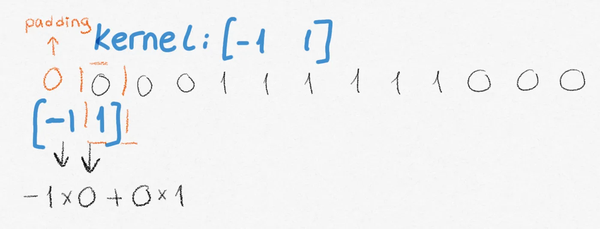 padding
kernel: [-1 1]
0 | 0 | 0 0 1 1 1 1 1 1 0 0 0
[-1 | 1] |
-1 × 0 + 0 × 1